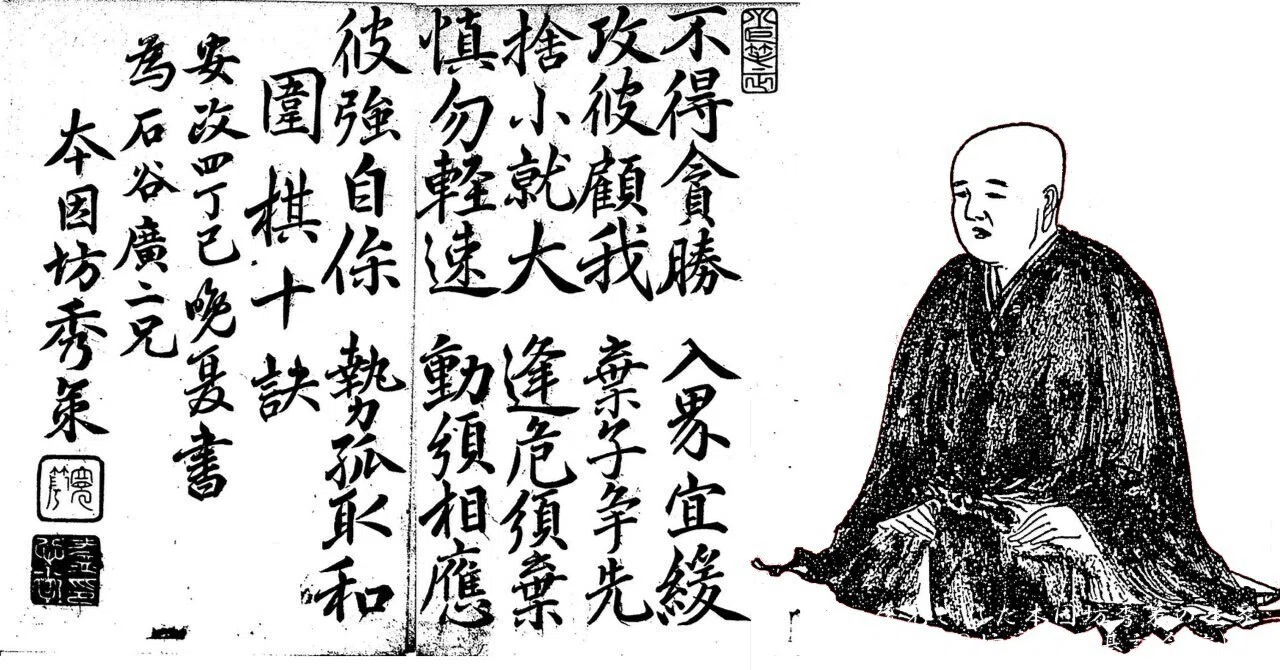 不得貪勝 入界宜緩
攻彼顧我 棄子争先
捨小就大 逢危須棄
慎勿軽速 動須相應
彼強自保 勢孤取和
圍棋十訣
安政四丁巳晩夏書
為石谷廣二兄
本因坊秀策